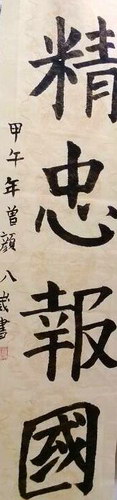 精忠報國
甲午年曾顔八歲書